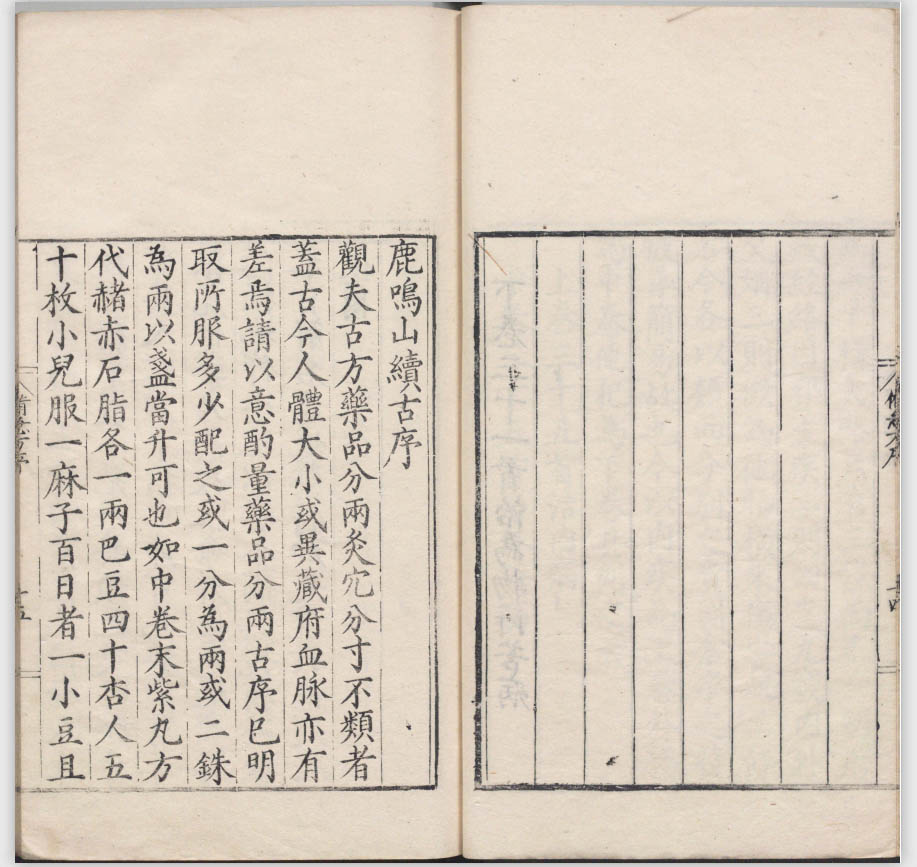 鹿鳴山續古序
觀夫古方藥品分兩灸穴分寸不類者
蓋古今人體大小或異藏府血脉亦有
差焉請以意酌量藥品分兩古序已明
取所服多少配之或一分為兩或二銖
為兩以盞當升可也如中卷末紫丸方
代赭赤石脂各一兩巴豆四十杏人五
十枚小兒服一麻子百日者一小豆且